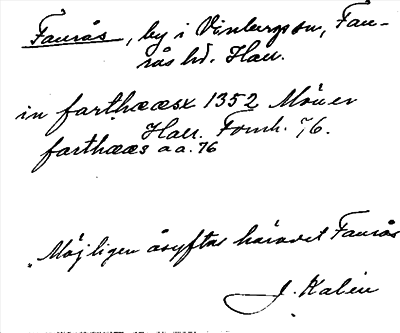 Faurås, by i Vinbergs sn, Fau-
rås hd. Hall.
in farthææsx 1352 Möller
Hall. Fornh. 76.
farthææs a a. 76
Möjligen åsyftas häradet Faurås
J. Kalén